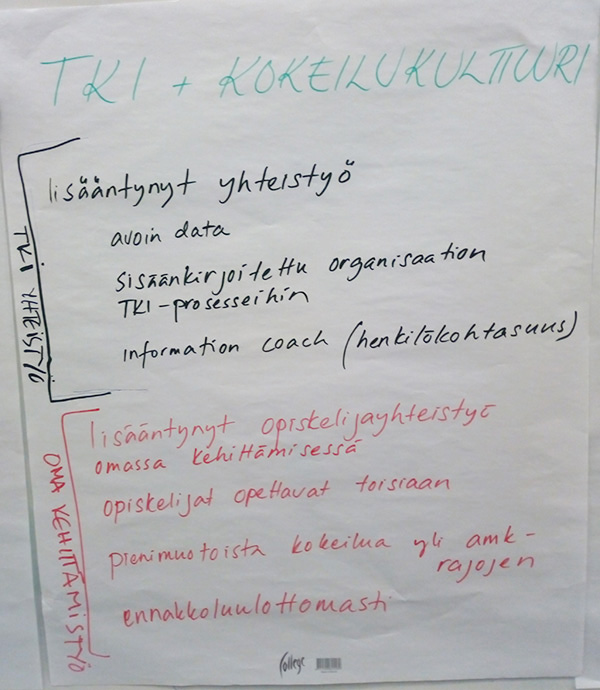 TKI + KOKEILUKULTTUURI
TKI YHTEISTYÖ
lisääntynyt yhteistyö
avoin data
sisäänkirjoitettu organisaation
TKI-prosesseihin
information coach (henkilökohtasuus)
OMA KEHITTÄMISTYÖ
lisääntynyt opiskelijayhteistyö
omassa kehittämisessä
opiskelijat opettavat toisiaan
pienimuotoista kokeilua yli amk-
rajojen
ennakkoluulottomasti
College